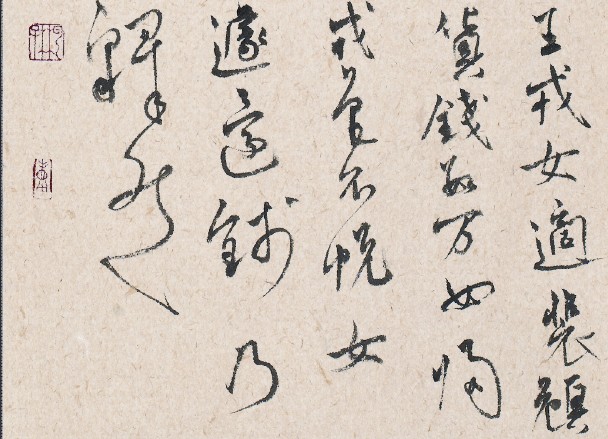 王戎女適裴頠
貸錢數万女歸
戎色不悅女
遽還錢乃
釋然